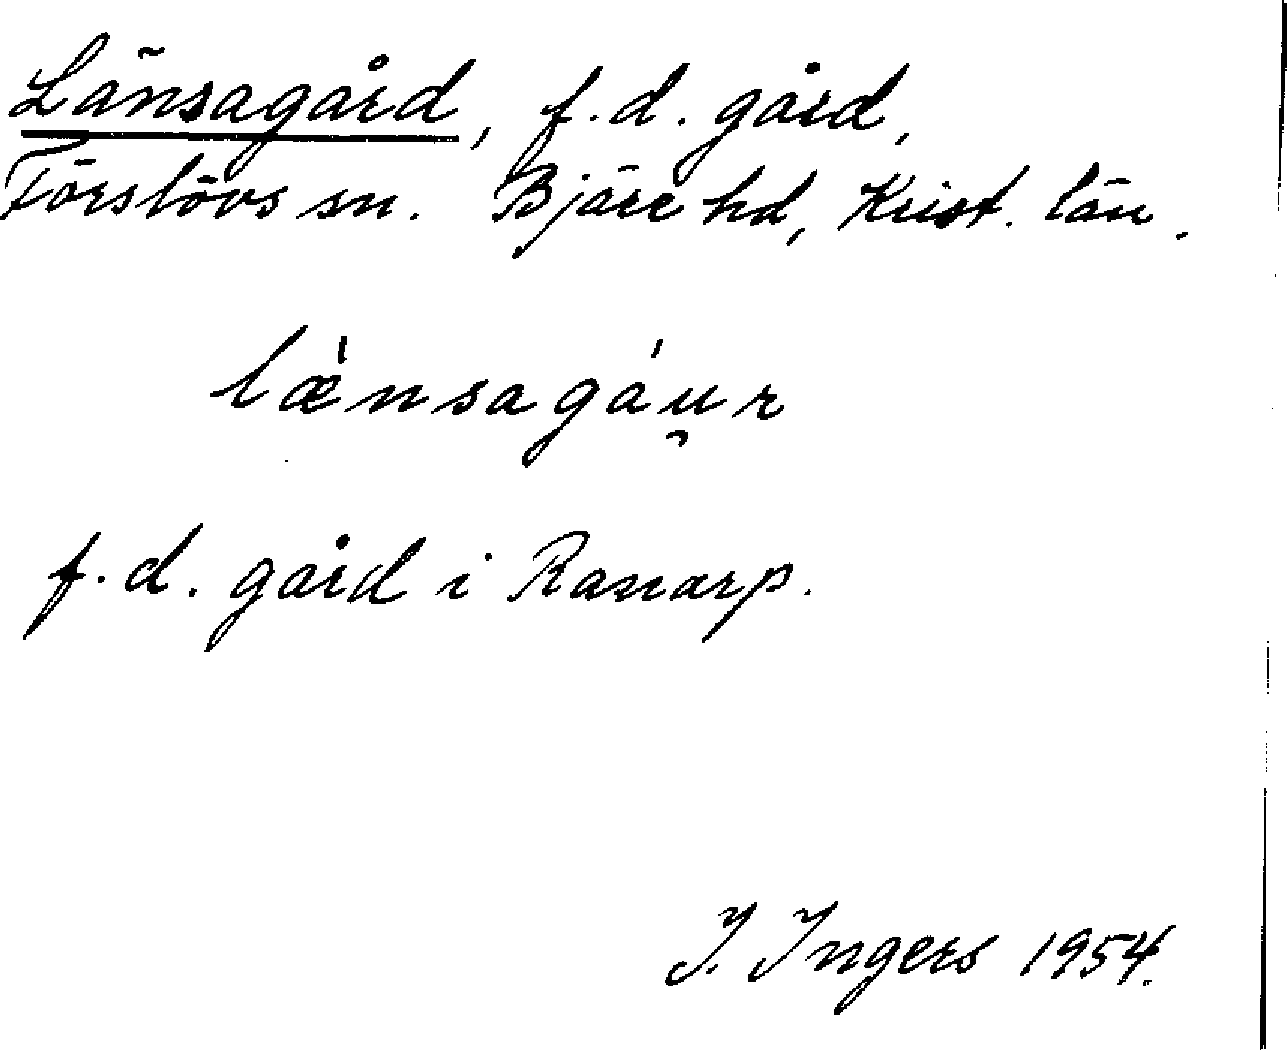 Länsagård, f.d. gård,
Förslövs sn. Bjäre hd, Krist. län.
læ̀nsagáu̯r
f.d. gård i Ranarp.
I. Ingers 1954.